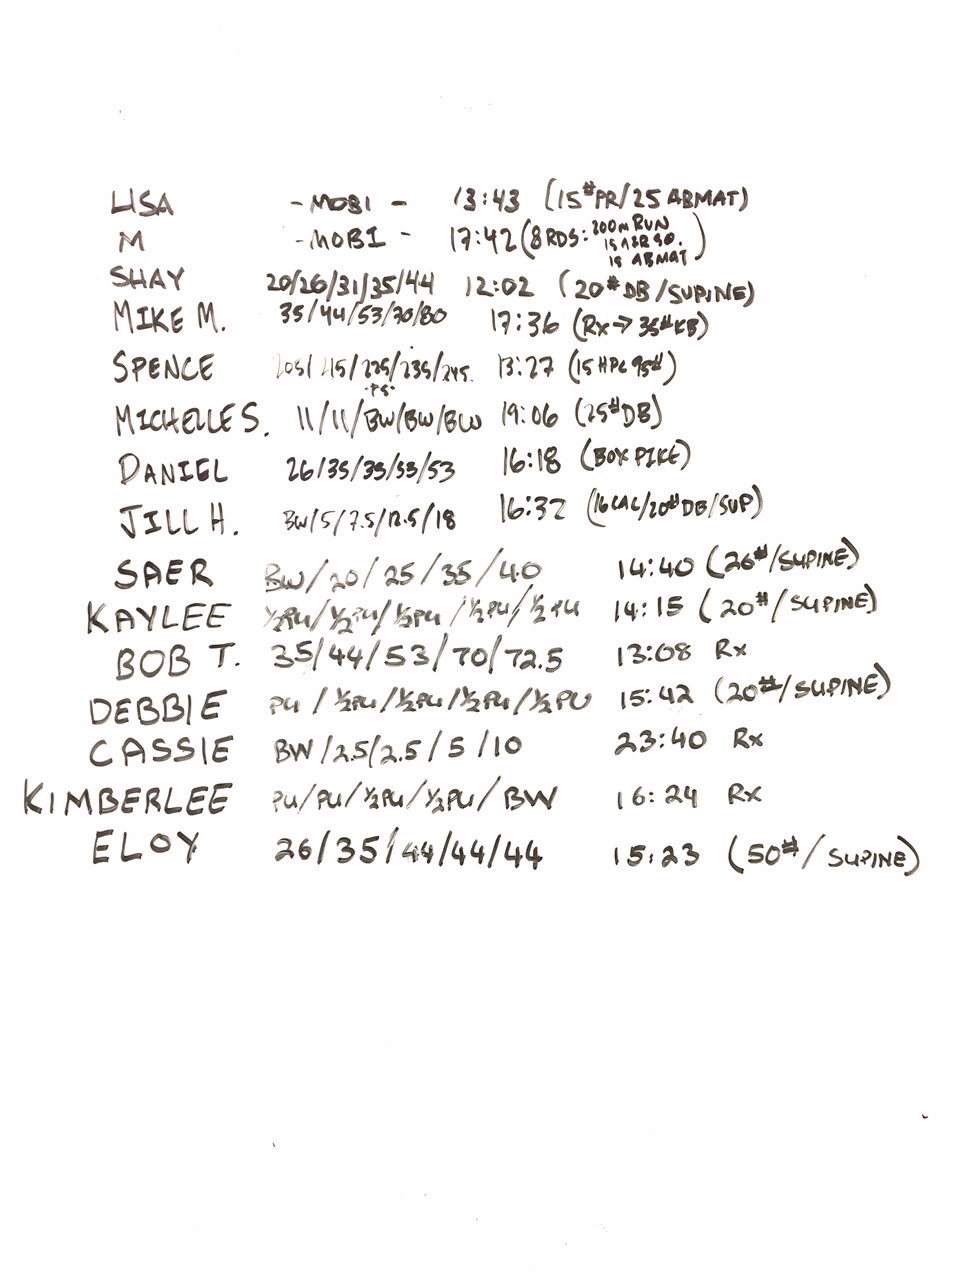 LISA - MOBI - 13:43 (15# PR/25 ABMAT)
M - MOBI - 17:42 (8 RDS: 200m RUN
15 AIR SQ.
15 ABMAT)
SHAY 20/26/31/35/44 12:02 (20# DB/SUPINE)
MIKE M. 35/44/53/70/80 17:36 (Rx→35# KB)
SPENCE 205/215/225/235/245 13:27 (15 HPC 95#)
-PS-
MICHELLE S. 11/11/BW/BW/BW 19:06 (25# DB)
DANIEL 26/35/35/53/53 16:18 (BOX PIKE)
JILL H. BW/5/7.5/12.5/18 16:32 (16 CAL/20# DB/SUP)
SAER BW/20/25/35/40 14:40 (26#/SUPINE)
KAYLEE ½PU/½PU/½PU/½PU/½PU 14:15 (20#/SUPINE)
BOB T. 35/44/53/70/72.5 13:08 Rx
DEBBIE PU/½PU/½PU/½PU/½PU 15:42 (20#/SUPINE)
CASSIE BW/2.5/2.5/5/10 23:40 Rx
KIMBERLEE PU/PU/½PU/½PU/BW 16:24 Rx
ELOY 26/35/44/44/44 15:23 (50#/SUPINE)